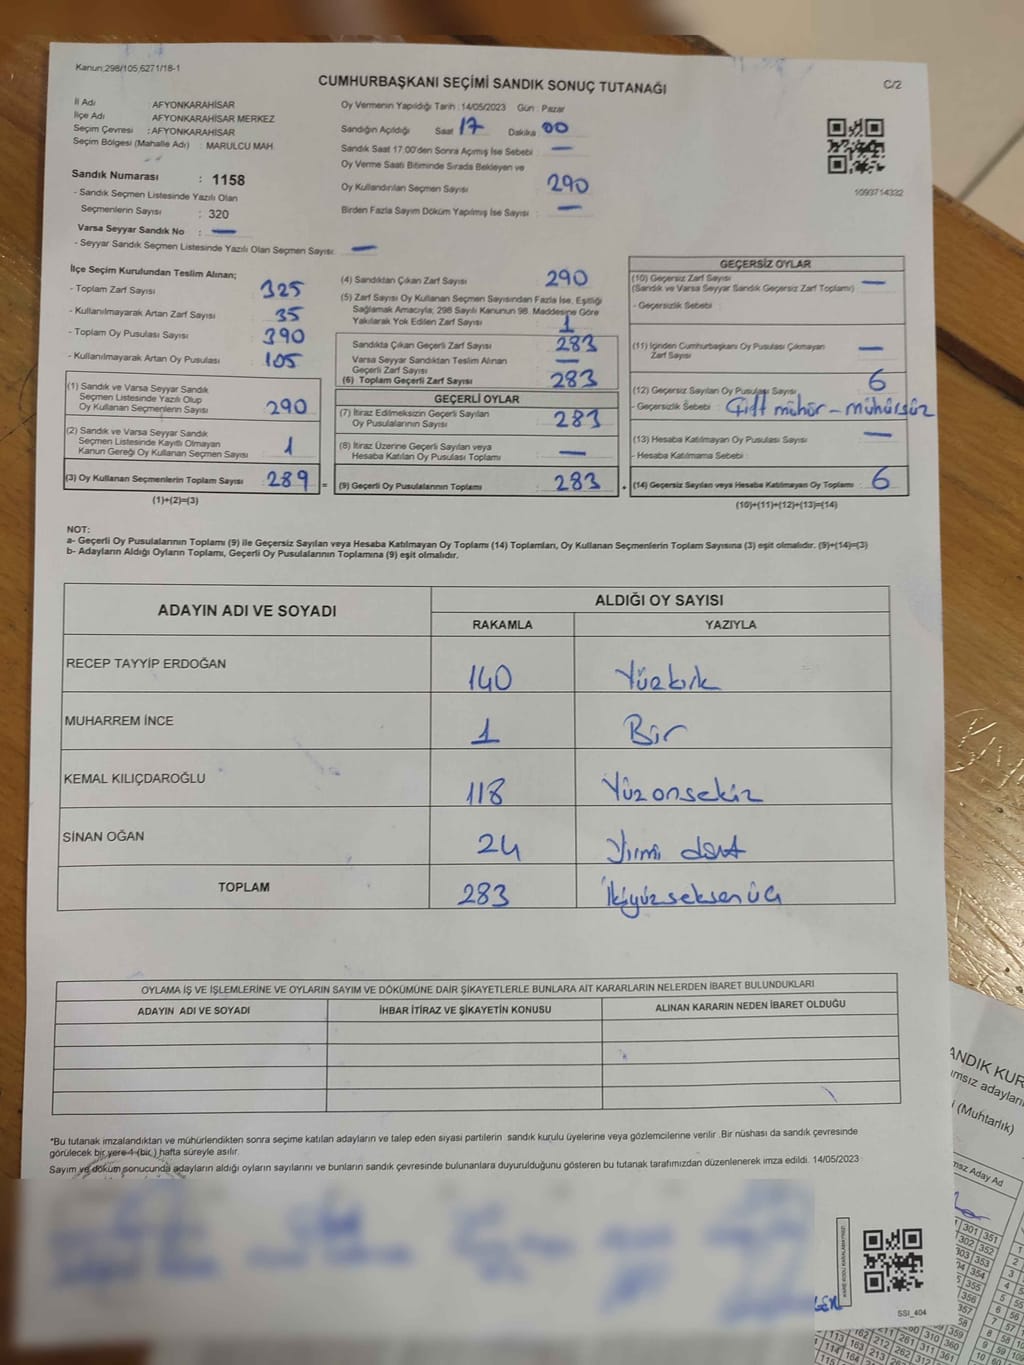 Kanun:298/105,6271/18-1
CUMHURBAŞKANI SEÇİMİ SANDIK SONUÇ TUTANAĞI
C/2
İl Adı : AFYONKARAHİSAR
İlçe Adı : AFYONKARAHİSAR MERKEZ
Seçim Çevresi : AFYONKARAHİSAR
Seçim Bölgesi (Mahalle Adı) : MARULCU MAH.
Sandık Numarası : 1158
- Sandık Seçmen Listesinde Yazılı Olan
Seçmenlerin Sayısı : 320
Varsa Seyyar Sandık No : —
- Seyyar Sandık Seçmen Listesinde Yazılı Olan Seçmen Sayısı: —
Oy Vermenin Yapıldığı Tarih :14/05/2023 Gün : Pazar
Sandığın Açıldığı Saat 17 Dakika 00
Sandık Saat 17:00'den Sonra Açımış İse Sebebi : —
Oy Verme Saati Bitiminde Sırada Bekleyen ve
Oy Kullandırılan Seçmen Sayısı 290
Birden Fazla Sayım Döküm Yapılmış İse Sayısı : —
1093714332
İlçe Seçim Kurulundan Teslim Alınan;
- Toplam Zarf Sayısı : 325
- Kullanılmayarak Artan Zarf Sayısı : 35
- Toplam Oy Pusulası Sayısı : 390
- Kullanılmayarak Artan Oy Pusulası : 105
(1) Sandık ve Varsa Seyyar Sandık
Seçmen Listesinde Yazılı Olup
Oy Kullanan Seçmenlerin Sayısı : 290
(2) Sandık ve Varsa Seyyar Sandık
Seçmen Listesinde Kayıtlı Olmayan
Kanun Gereği Oy Kullanan Seçmen Sayısı : 1
(3) Oy Kullanan Seçmenlerin Toplam Sayısı : 289 =
(1)+(2)=(3)
(4) Sandıktan Çıkan Zarf Sayısı : 290
(5) Zarf Sayısı Oy Kullanan Seçmen Sayısından Fazla İse, Eşitliği
Sağlamak Amacıyla; 298 Sayılı Kanunun 98. Maddesine Göre
Yakılarak Yok Edilen Zarf Sayısı : 1
Sandıkta Çıkan Geçerli Zarf Sayısı : 283
Varsa Seyyar Sandıktan Teslim Alınan
Geçerli Zarf Sayısı : —
(6) Toplam Geçerli Zarf Sayısı : 283
GEÇERLİ OYLAR
(7) İtiraz Edilmeksizin Geçerli Sayılan
Oy Pusulalarının Sayısı : 283
(8) İtiraz Üzerine Geçerli Sayılan veya
Hesaba Katılan Oy Pusulası Toplamı : —
(9) Geçerli Oy Pusulalarının Toplamı : 283 +
GEÇERSİZ OYLAR
(10) Geçersiz Zarf Sayısı
(Sandık ve Varsa Seyyar Sandık Geçersiz Zarf Toplamı) : —
- Geçersizlik Sebebi :
(11) İçinden Cumhurbaşkanı Oy Pusulası Çıkmayan
Zarf Sayısı : —
(12) Geçersiz Sayılan Oy Pusulası Sayısı : 6
- Geçersizlik Sebebi : Çift mühür - mühürsüz
(13) Hesaba Katılmayan Oy Pusulası Sayısı : —
- Hesaba Katılmama Sebebi :
(14) Geçersiz Sayılan veya Hesaba Katılmayan Oy Toplamı : 6
(10)+(11)+(12)+(13)=(14)
NOT:
a- Geçerli Oy Pusulalarının Toplamı (9) ile Geçersiz Sayılan veya Hesaba Katılmayan Oy Toplamı (14) Toplamları, Oy Kullanan Seçmenlerin Toplam Sayısına (3) eşit olmalıdır. (9)+(14)=(3)
b- Adayların Aldığı Oyların Toplamı, Geçerli Oy Pusulalarının Toplamına (9) eşit olmalıdır.
ADAYIN ADI VE SOYADI ALDIĞI OY SAYISI
RAKAMLA YAZIYLA
RECEP TAYYİP ERDOĞAN 140 Yüzkırk
MUHARREM İNCE 1 Bir
KEMAL KILIÇDAROĞLU 118 Yüzonsekiz
SİNAN OĞAN 24 Yirmi dört
TOPLAM 283 İkiyüzseksenüç
OYLAMA İŞ VE İŞLEMLERİNE VE OYLARIN SAYIM VE DÖKÜMÜNE DAİR ŞİKAYETLERLE BUNLARA AİT KARARLARIN NELERDEN İBARET BULUNDUKLARI
ADAYIN ADI VE SOYADI İHBAR İTİRAZ VE ŞİKAYETİN KONUSU ALINAN KARARIN NEDEN İBARET OLDUĞU
*Bu tutanak imzalandıktan ve mühürlendikten sonra seçime katılan adayların ve talep eden siyasi partilerin sandık kurulu üyelerine veya gözlemcilerine verilir .Bir nüshası da sandık çevresinde
görülecek bir yere 1 (bir ) hafta süreyle asılır.
Sayım ve döküm sonucunda adayların aldığı oyların sayılarını ve bunların sandık çevresinde bulunanlara duyurulduğunu gösteren bu tutanak tarafımızdan düzenlenerek imza edildi. 14/05/2023
SSI_404
ANDIK KUR
(Muhtarlık)